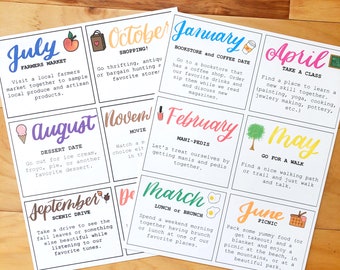 July
FARMERS MARKET
Visit a local farmers
market together to sample
local produce and artisan
products.
October
SHOPPING!
Go thrifting, antiquing
or bargain hunting
favorite stores
August
DESSERT DATE
Go out for ice cream,
froyo, pie, or another
favorite dessert.
Novem
MOVIE
September
SCENIC DRIVE
Take a drive to see the
fall leaves or something
else beautiful while
listening to our
favorite tunes.
De
January
BOOKSTORE and COFFEE DATE
Go to a bookstore that
has a coffee shop. Order
our favorite drinks and
discuss and read new
magazines.
April
TAKE A CLASS
Find a place to learn a
new skill together.
(painting, yoga, cooking,
jewelry making, pottery,
etc.)
February
MANI-PEDIS
Let's treat ourselves by
getting manis and pedis
together.
May
GO FOR A WALK
Find a nice walking path
or trail and just walk
and talk.
March
LUNCH or BRUNCH
Spend a weekend morning
together having brunch
or lunch at one of our
favorite places.
June
PICNIC
Pack some yummy food (or
get takeout) and a
picnic blanket and enjoy
the outdoors - in the
mountains, at the
beach, or in a beautiful
park.